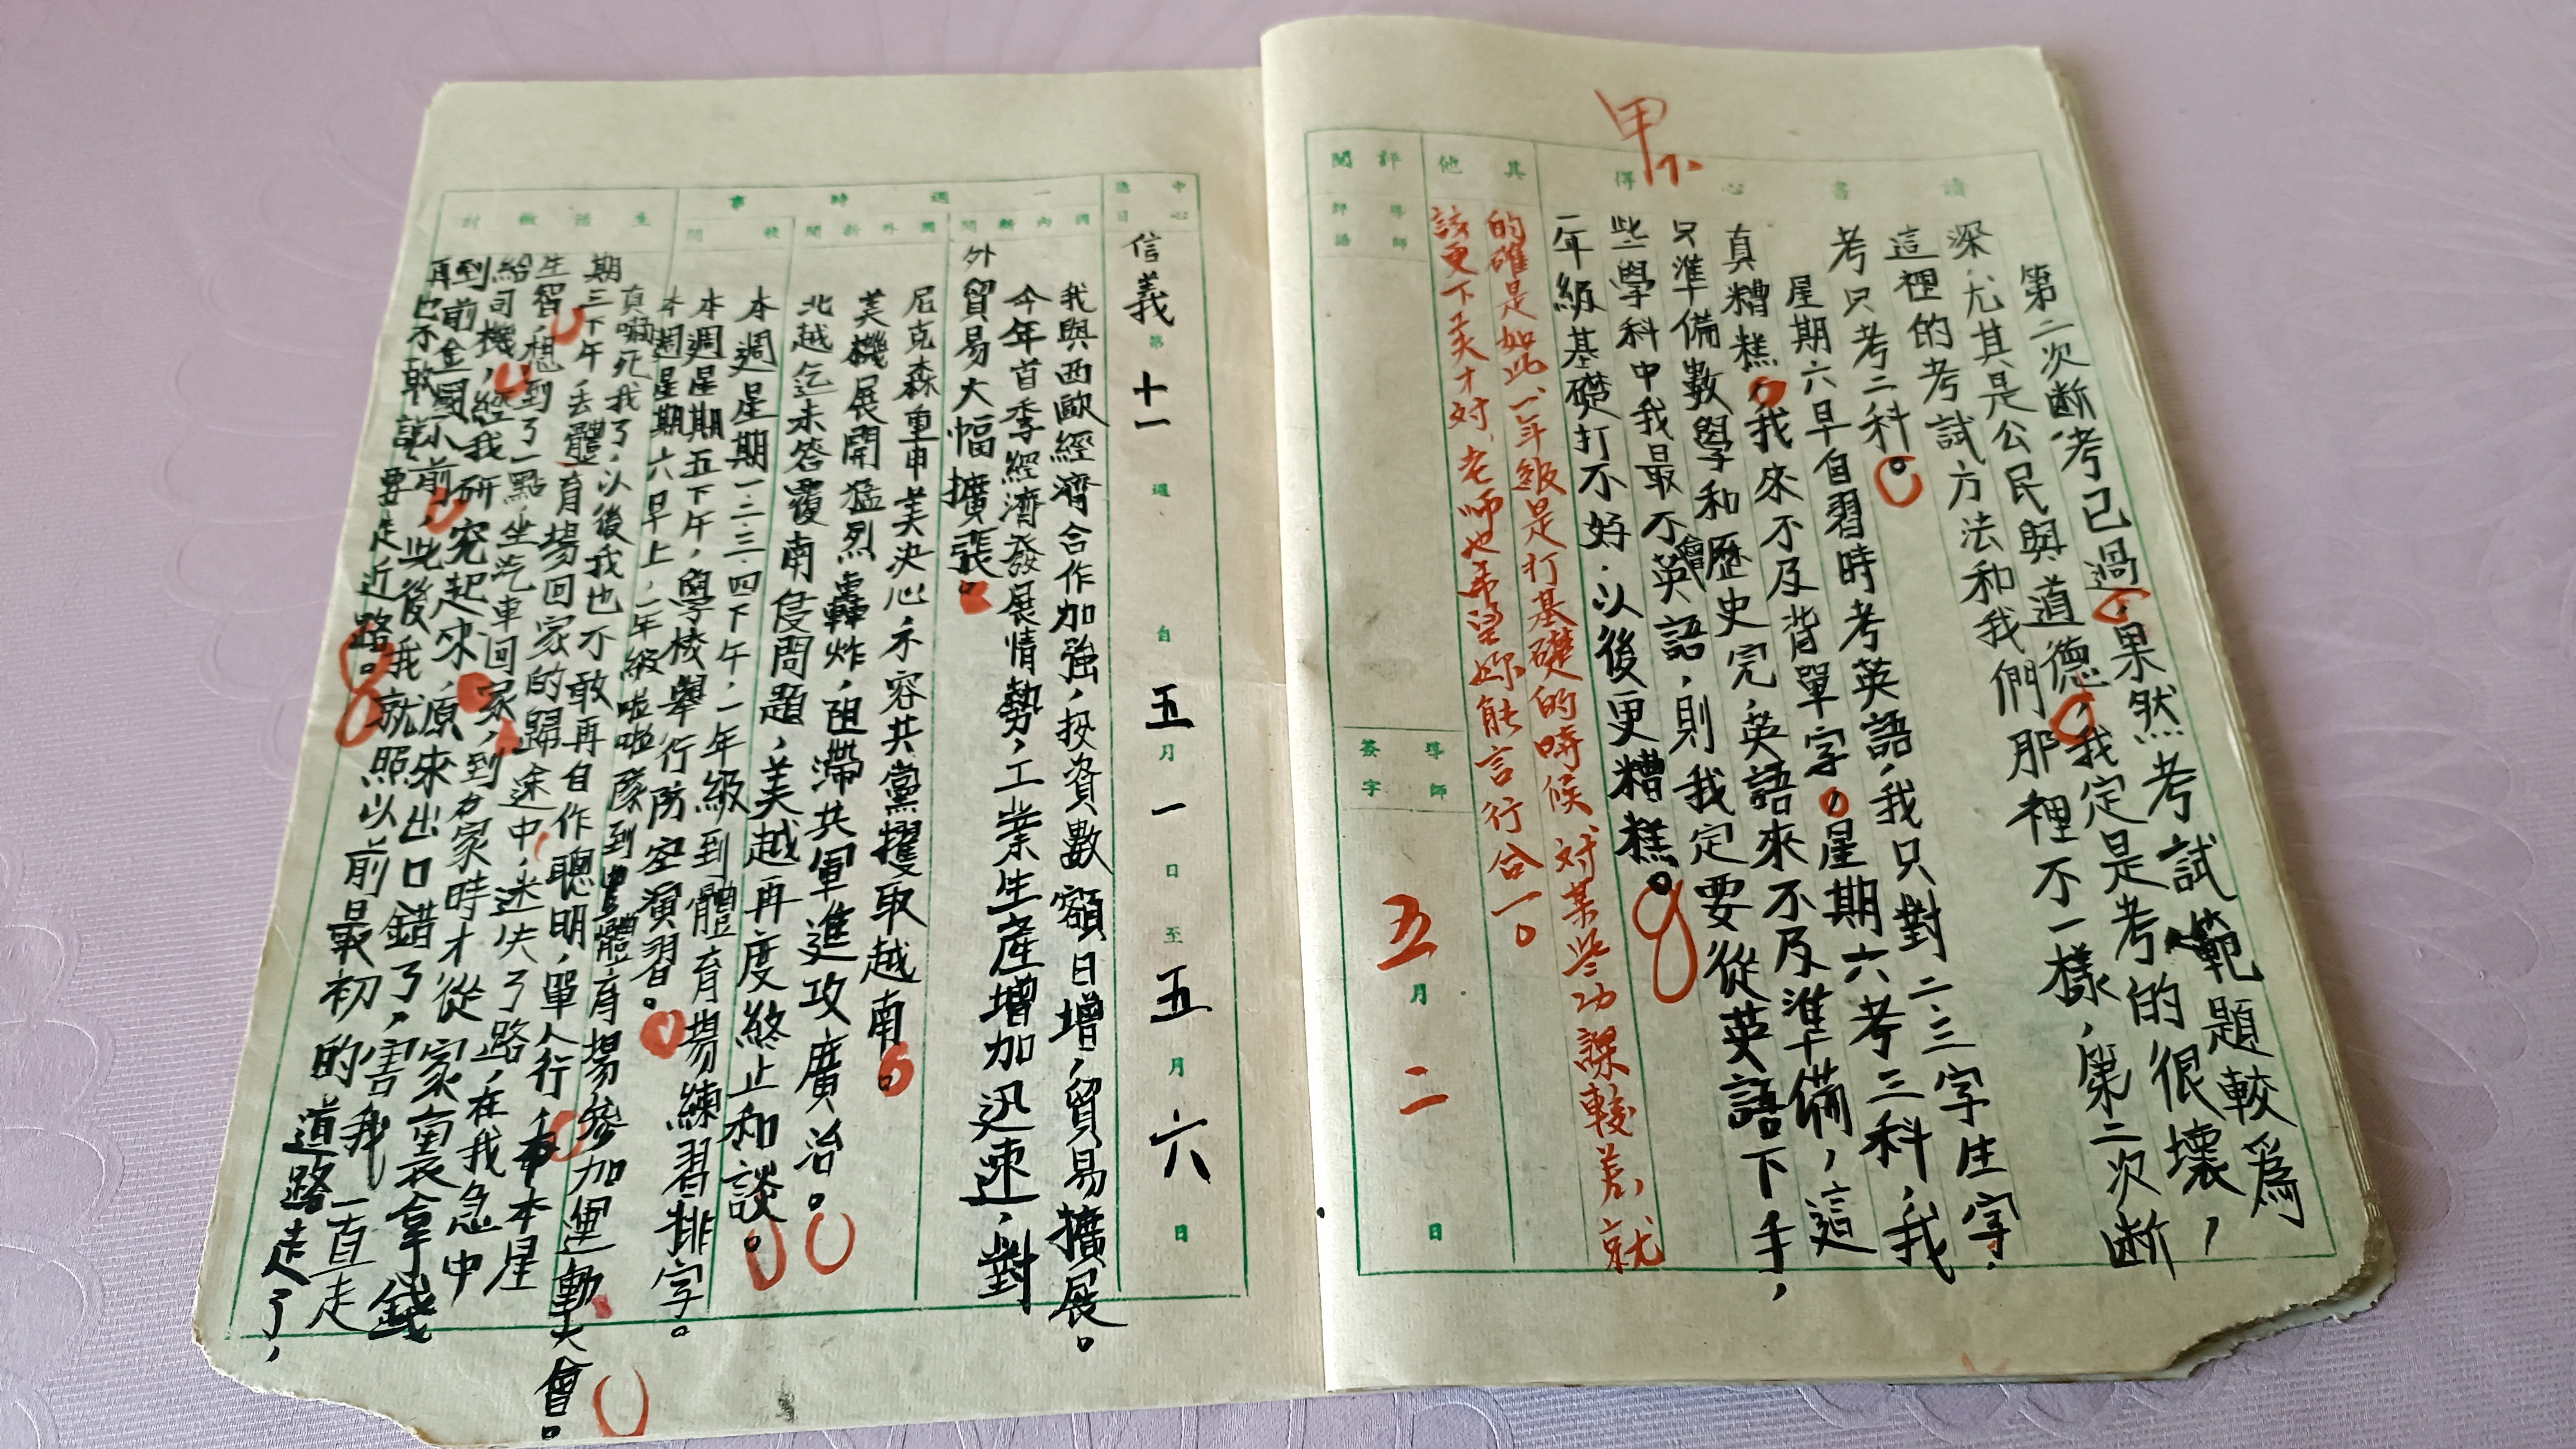 甲下
讀書心得
第二次斷考已過,果然考試範題較為
深,尤其是公民與道德,我定是考的很壞,
這裡的考試方法和我們那裡不一樣,第二次斷
考只考二科。
星期六早自習時考英語,我只對二、三字生字,
真糟糕,我來不及背單字,星期六考三科,我
只準備數學和歷史完,英語來不及準備,這
些學科中我最不會英語,則我定要從英語下手,
一年級基礎打不好,以後更糟糕。
其他
的確是如此,一年級是打基礎的時候,對某些功課較差,就
該更下工夫才对,老师也希望妳能言行合一。
評閱
導師評語
導師簽字
五月二日
中心德目
信義 第十一週 自五月一日至五月六日
一週時事
國內新聞
我與西歐經濟合作加強,投資數額日增,貿易擴展。
今年首季經濟發展情勢,工業生產增加迅速,對
外貿易大幅擴張。
國外新聞
尼克森重申美決心,不容共黨攫取越南。
美機展開猛烈轟炸,阻滯共軍進攻廣治。
北越迄未答覆南侵問題,美越再度終止和談。
校聞
本週星期一、二、三、四下午,一年級到體育場練習排字。
本週星期五下午,學校舉行防空演習。
本週星期六早上,一年級啦啦隊到豐體育場參加運動大會。
生活檢討
真嚇死我了,以後我也不敢再自作聰明,單人行,本星
期三下午去體育場回家的歸途中,迷失了路,在我急中
生智,想到了一點,坐汽車回家,到家時才從家裏拿錢
給司機,經我研究起來,原來出口錯了,害我一直走
到前金國小前,此後我就照以前最初的道路走了,
再也不敢說要走近路。